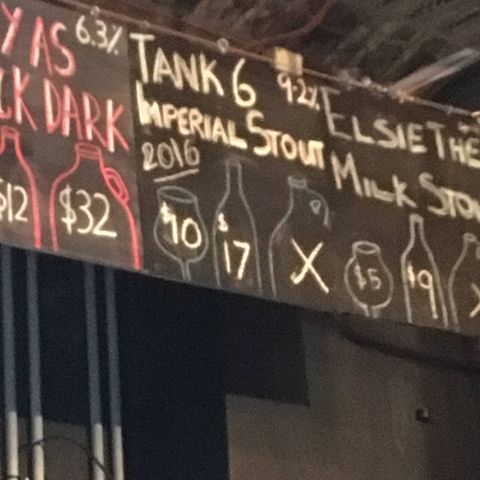 Y AS 6.3%
CK DARK
$12 $32
TANK 6 9.2%
IMPERIAL STOUT
2016
$10 $17 X
ELSIE THE
MILK STOU
$5 $9 X